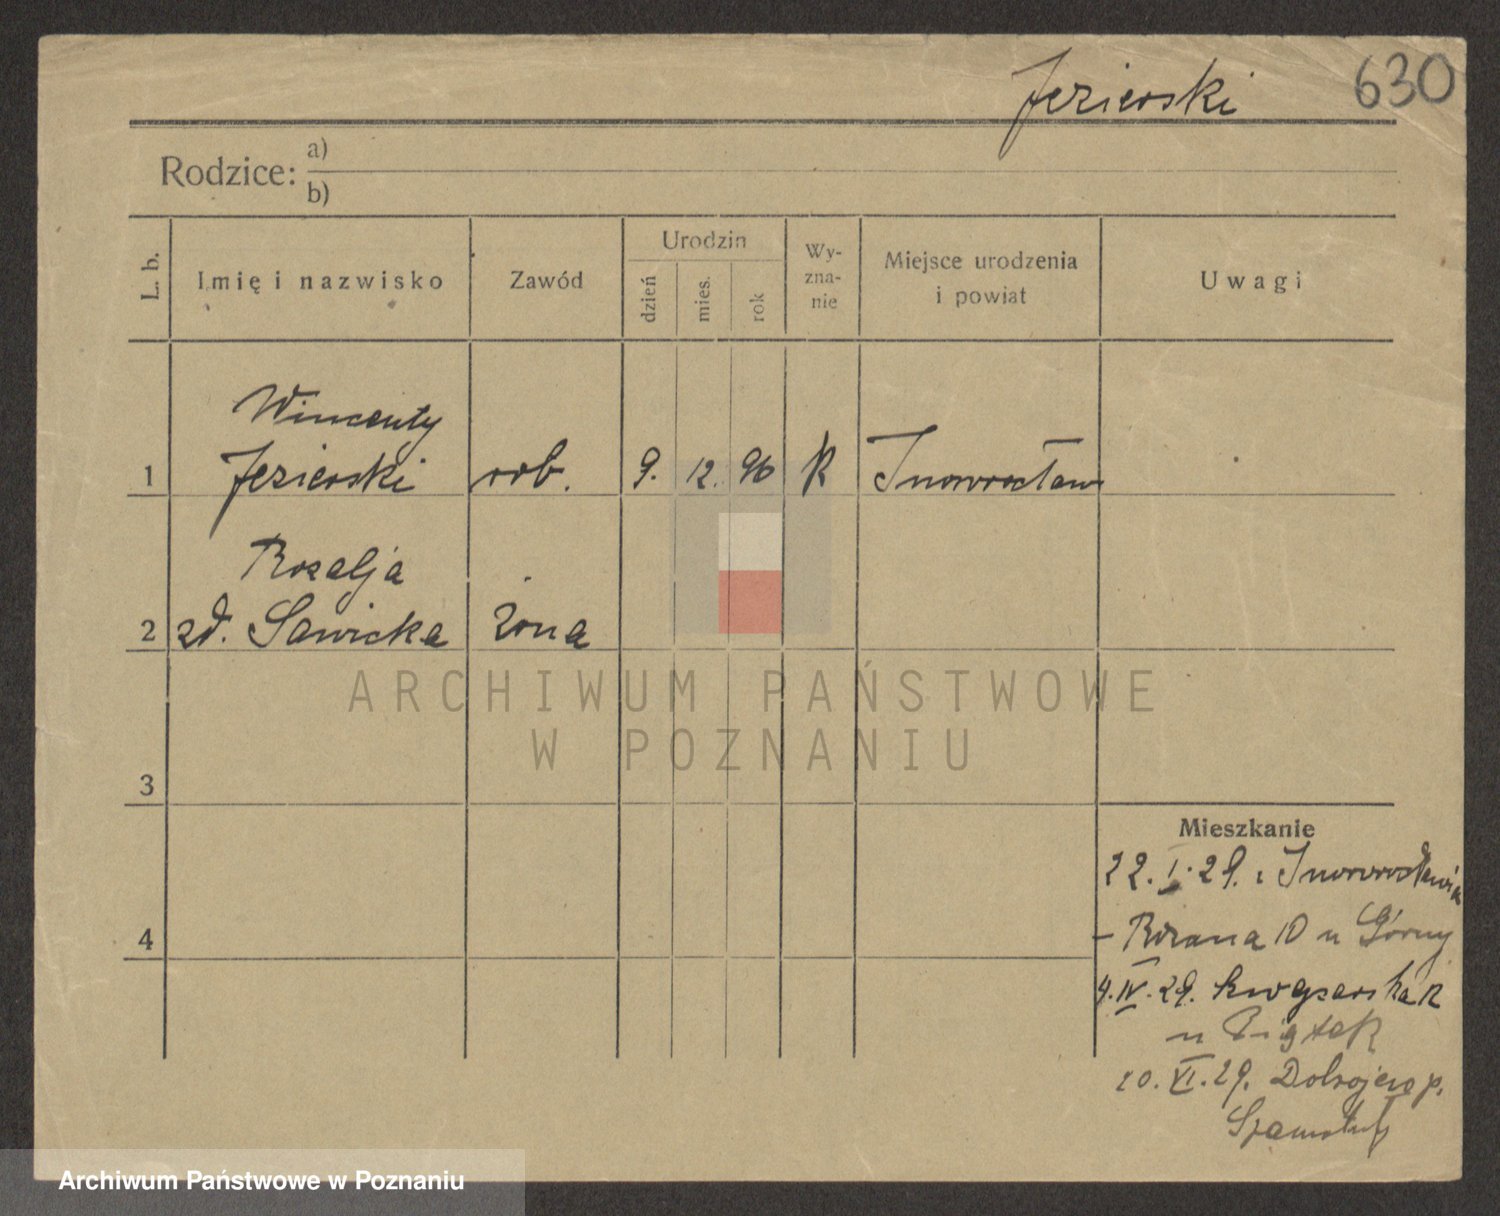 Jezierski 630
Rodzice: a)
b)
L. b. Imię i nazwisko Zawód Urodzin dzień mies. rok Wy-zna-nie Miejsce urodzenia i powiat Uwagi
Wincenty
1 Jezierski rob. 9. 12. 96 k Inowrocław
Rozalja
2 zd. Sawicka żona
ARCHIWUM PAŃSTWOWE
W POZNANIU
3
Mieszkanie
22. I. 29. z Inowrocławia
4
- Różana 10 u Górny
4. IV. 29.
u Piątek
20. VI. 29. p.
Szamotuły
Archiwum Państwowe w Poznaniu